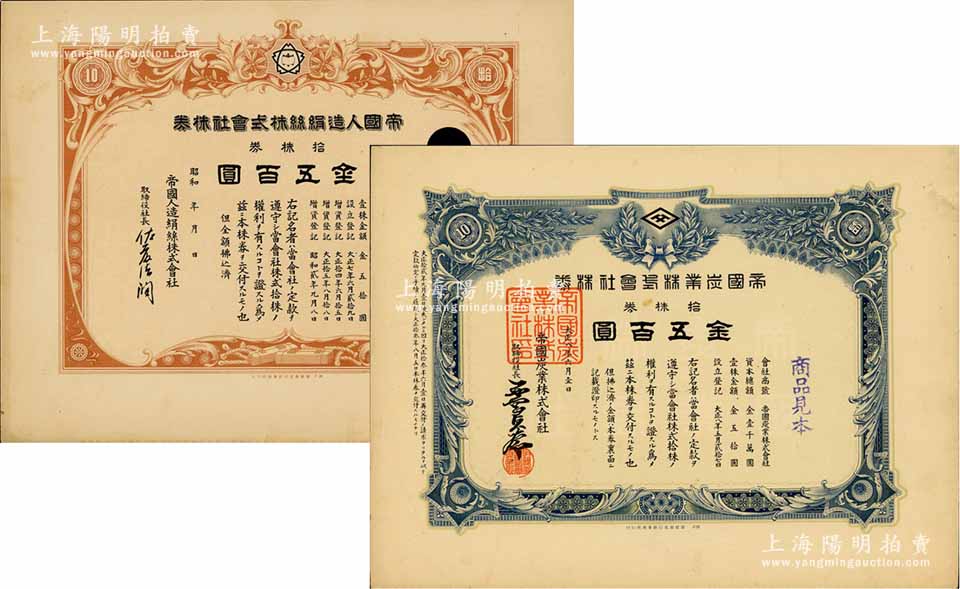 上海陽明拍賣
www.yangmingauction.com
10
拾
帝國人造絹絲株式會社株券
拾株券
金五百圓
壹株金額 金五拾圓
設立登記 大正七年六月貳拾九日
增資登記 大正拾四年六月拾五日
增資登記 大正拾五年八月拾八日
增資登記 昭和貳年九月八日
右記名者ハ當會社ノ定款ヲ
遵守シ當會社株式拾株ノ
權利ヲ有スルコトヲ證スル爲メ
茲ニ本株券ヲ交付スルモノ也
但全額拂込濟
昭和 年 月 日
帝國人造絹絲株式會社
取締役社長
10
拾
帝國炭業株式會社株券
拾株券
金五百圓
商品見本
會社商號 帝國炭業株式會社
資本總額 金壹千萬圓
壹株金額 金五拾圓
設立登記 大正八年五月貳拾七日
右記名者ハ當會社ノ定款ヲ
遵守シ當會社株式拾株ノ
權利ヲ有スルコトヲ證スル爲メ
茲ニ本株券ヲ交付スルモノ也
但拂込濟ノ金額ハ本券裏面ニ
記載證印スルモノトス
帝國炭業株式會社
取締役社長
上海陽明拍賣
www.yangmingauction.com
上海陽明拍賣
www.yangmingauction.com